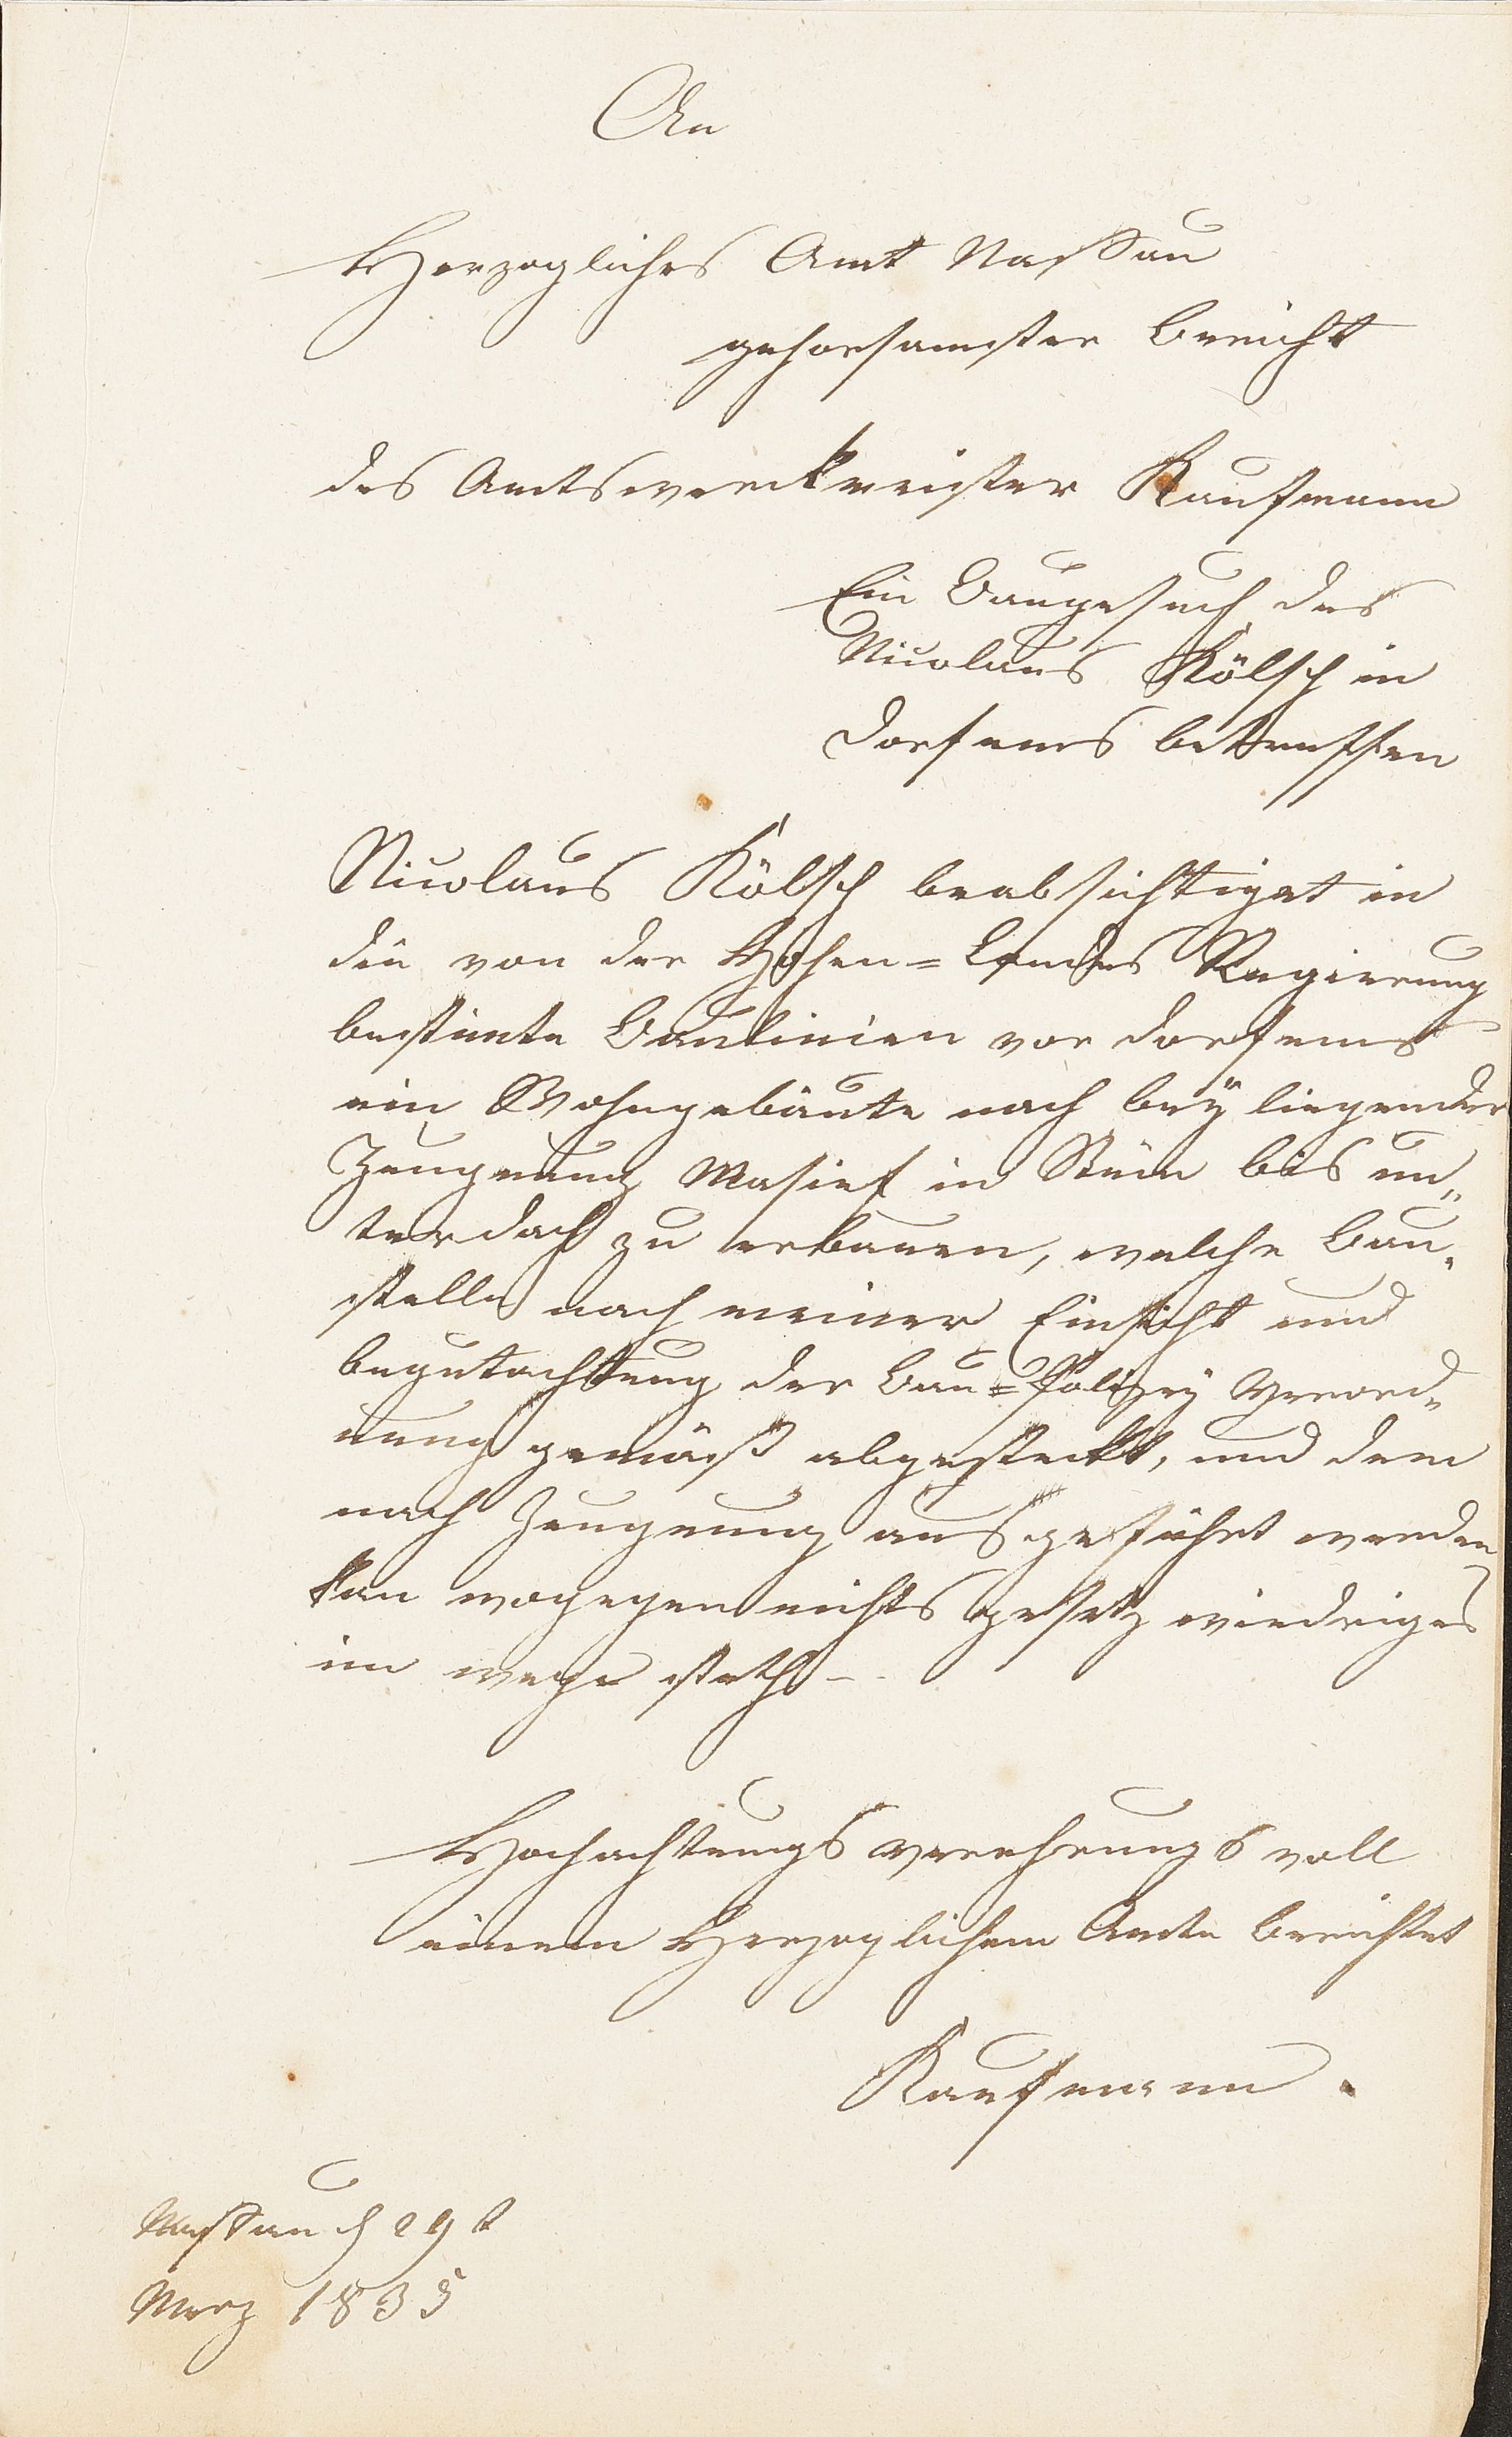 An
Herzogliches Amt Nassau
gehorsamster Bericht
des Amtswerckmeister Kaufmann
Ein Baugesuch des
Nicolaus Kölsch in
Dorfems betreffen
Nicolaus Kölsch beabsichtiget in
die von der Hohen=Landes Regierung
bestimte Baulinien vor Dorfems
ein Wohngebäute nach beÿ liegender
Zeugnung Masief in Stein bis un„
terdach zu erbauen, welche Bau„
stelle nach meiner Einsicht und
begutachtung der Bau=Polizeÿ Verord„
nung gemäß abgesteckt, und dem
nach Zeugnung ausgeführt werden
kan wogegen nichts gesetz wiedriges
im wege steth –
Hochachtungs verehrungs voll
einem Herzoglichem Amte berichtet
Kaufmann.
Nassau d 29 t
Merz 1835